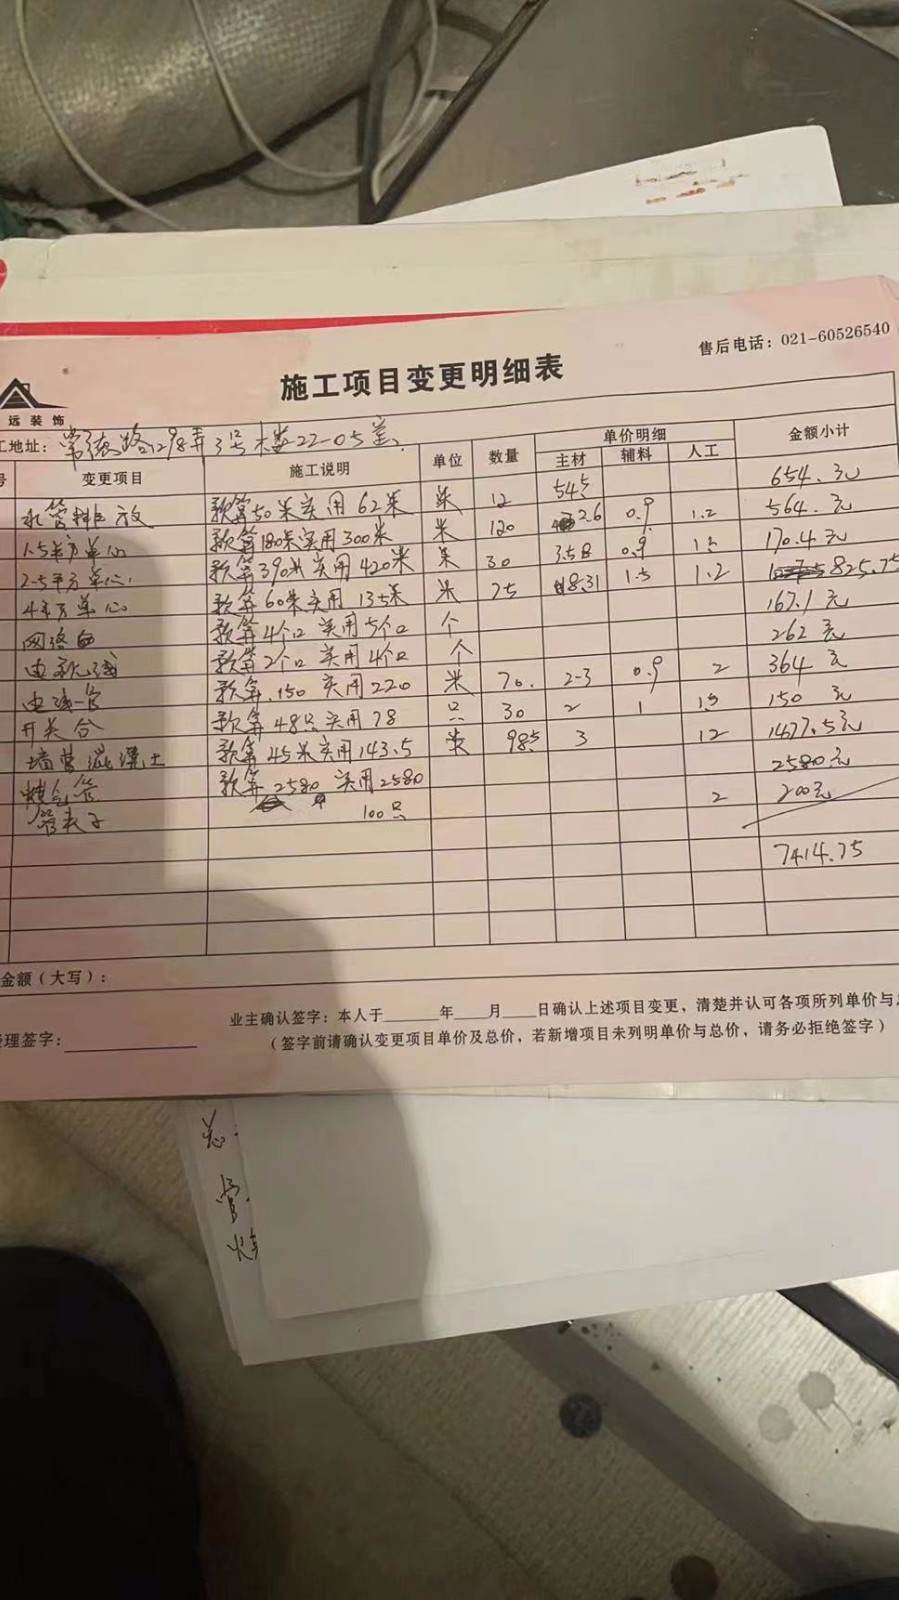 售后电话：021-60526540
施工项目变更明细表
远装饰
工地址：常德路1298弄3号楼22-05室
号 变更项目 施工说明 单位 数量 单价明细 金额小计
主材 辅料 人工
水管排放 预算50米实用62米 米 12 54.5 654.元
1.5平方单心 预算180米实用300米 米 120 2.6 0.9 1.2 564.元
2.5平方单心 预算390米实用420米 米 30 3.58 0.9 1.2 170.4元
4平方单心 预算60米实用135米 米 75 8.31 1.5 1.2 825.75
网络 预算4个口 实用5个口 个 167.1元
电视线 预算2个口 实用4个口 个 262元
电线管 预算.150 实用220 米 70. 2.3 0.9 2 364元
开关合 预算48只实用78 只 30 2 1 1.5 150元
墙 混凝土 预算45米实用143.5 米 98.5 3 12 1477.5元
预算2580 实用2580 2580元
管夹子 100只 2 200元
7414.75
金额（大写）：
业主确认签字：本人于 年 月 日确认上述项目变更，清楚并认可各项所列单价与总
理签字：
（签字前请确认变更项目单价及总价，若新增项目未列明单价与总价，请务必拒绝签字）